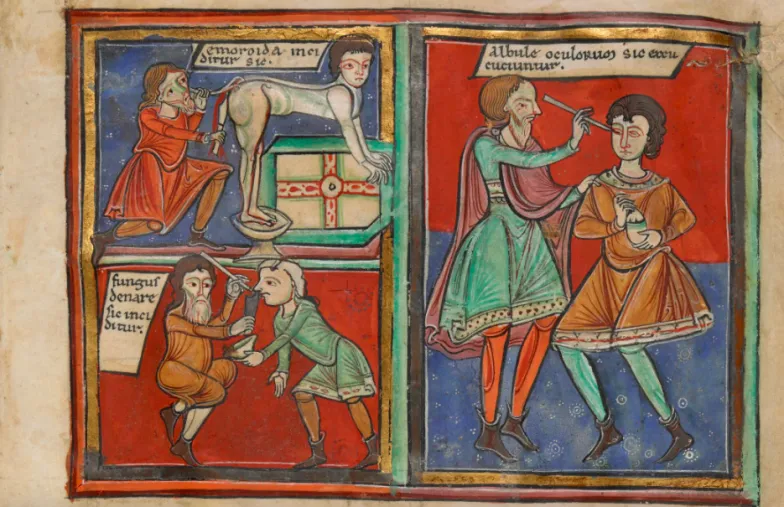 emoroida inci
ditur sic.
fungus
denare
sic inci
ditur.
albule oculorum sic excu
cuciuntur.